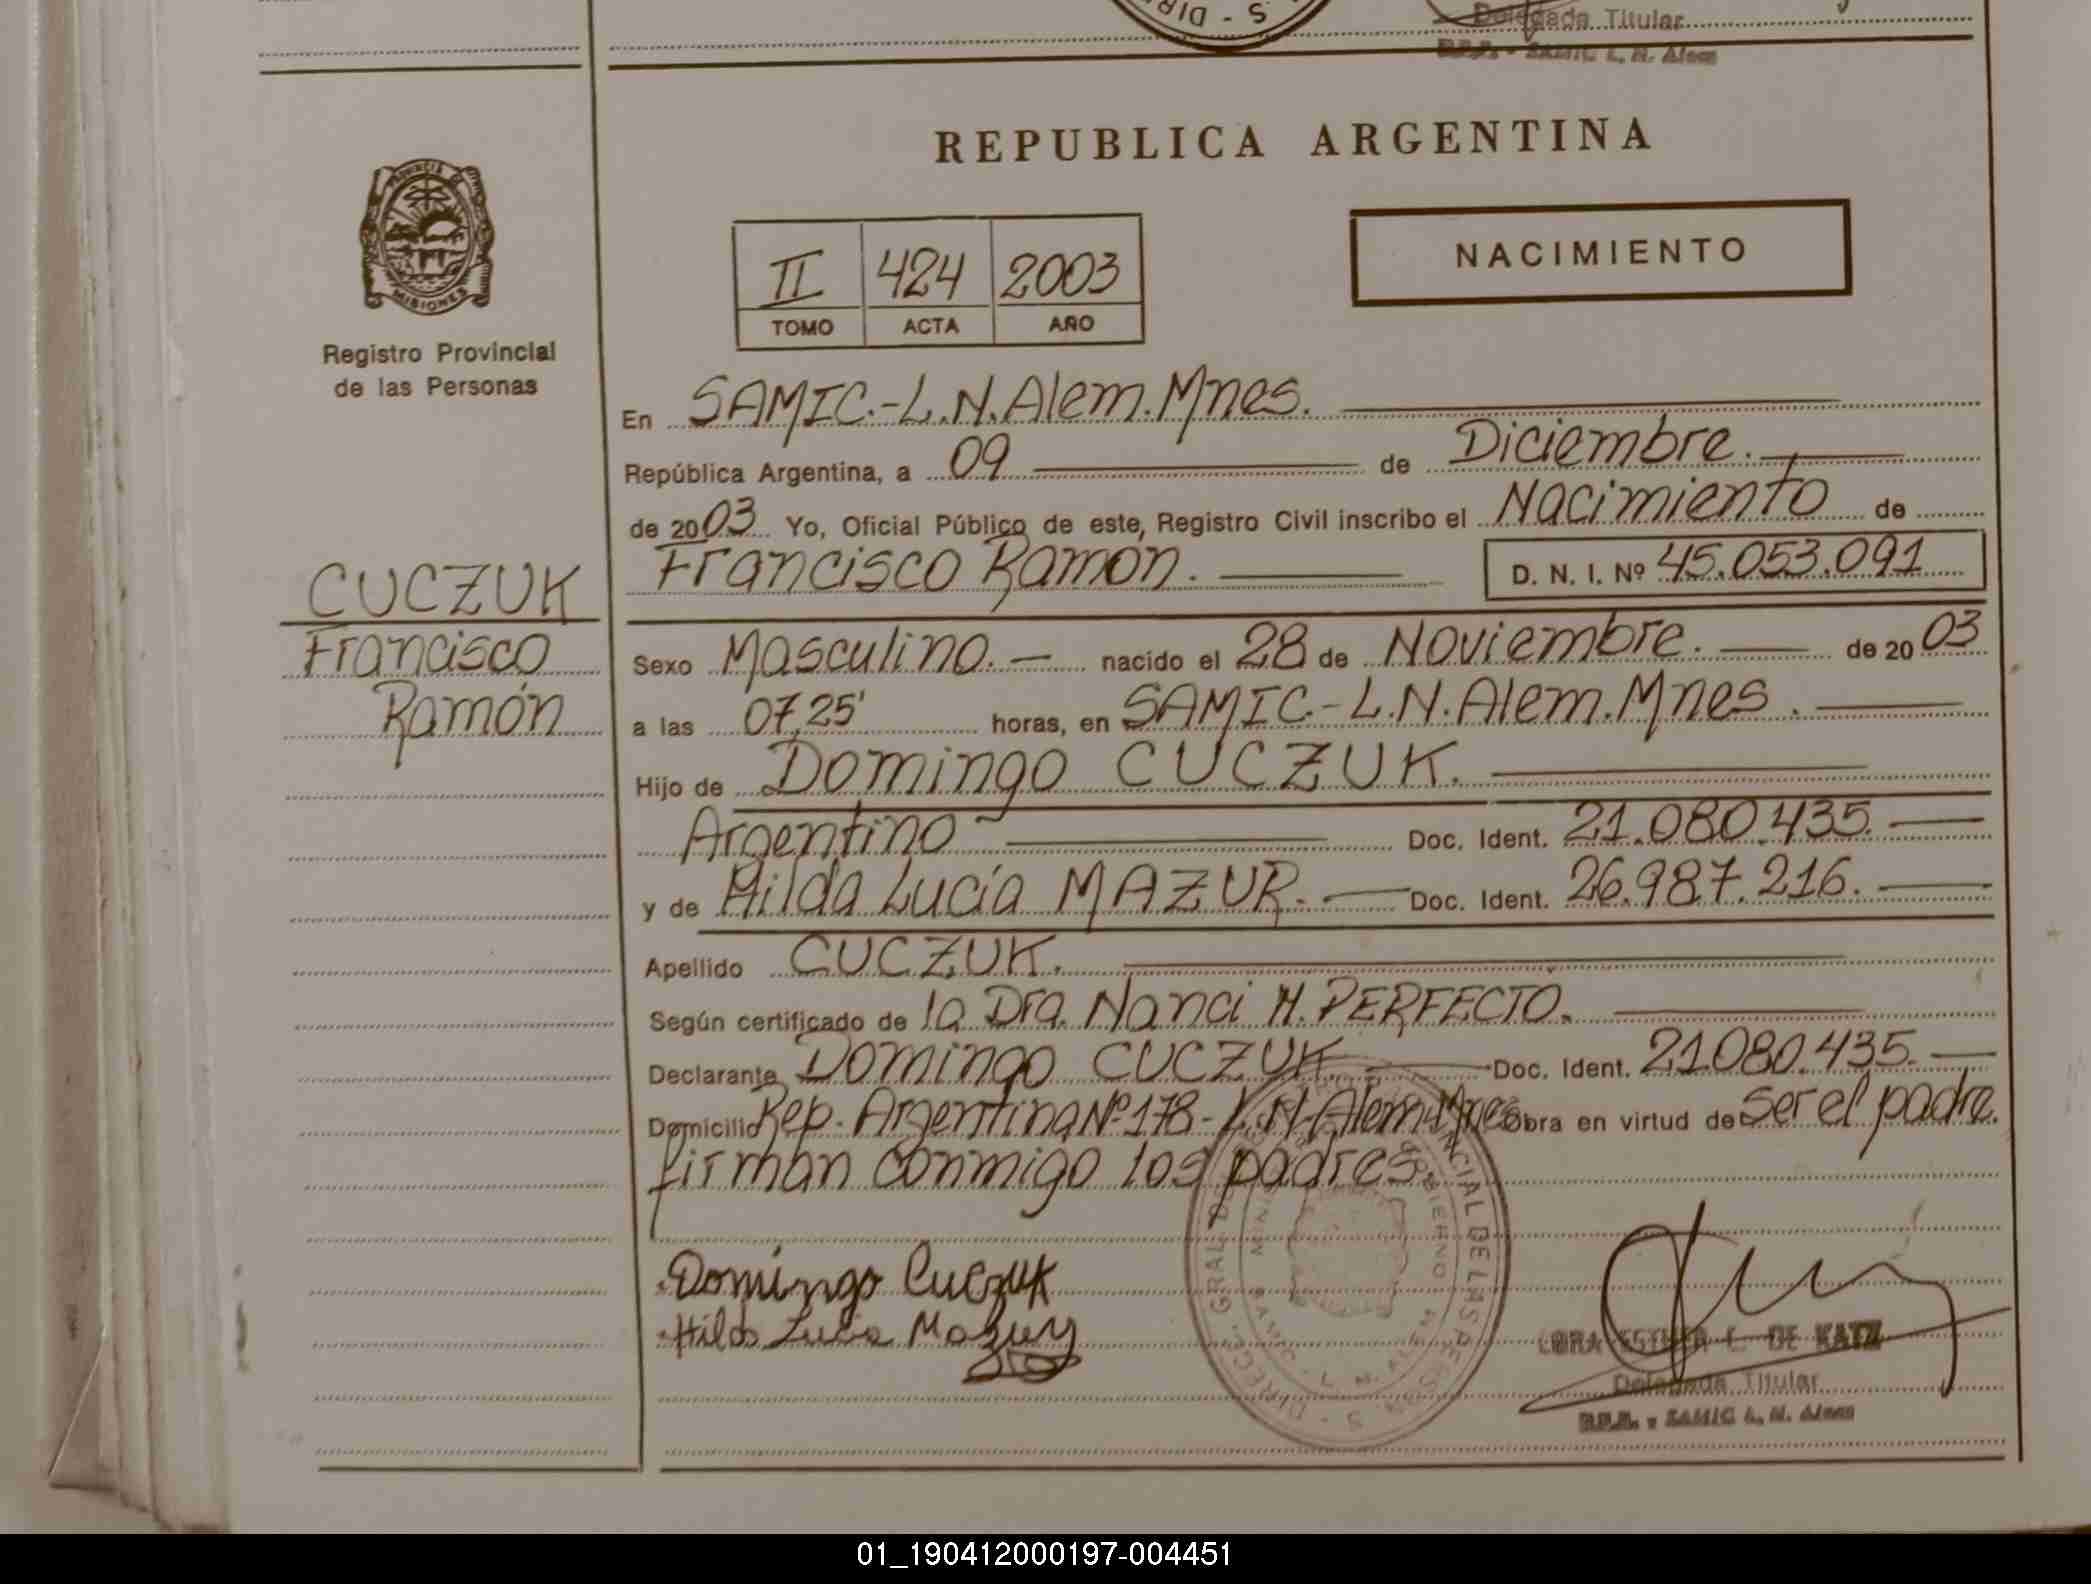 DIR - S
Delegada Titular
SAMIC L. N. Alem
REPUBLICA ARGENTINA
PROVINCIA DE
MISIONES
Registro Provincial
de las Personas
NACIMIENTO
II 424 2003
TOMO ACTA AÑO
En SAMIC.-L.N.Alem.Mnes.
República Argentina, a 09 de Diciembre.
de 2003 Yo, Oficial Público de este, Registro Civil inscribo el Nacimiento de
Francisco Ramon. D. N. I. Nº 45.053.091
CUCZUK
Francisco
Ramón
Sexo Masculino. nacido el 28 de Noviembre. de 20 03
a las 07,25' horas, en SAMIC.-L.N.Alem.Mnes.
Hijo de Domingo CUCZUK.
Argentino Doc. Ident. 21.080.435.
y de Hilda Lucía MAZUR. Doc. Ident. 26.987.216.
Apellido CUCZUK.
Según certificado de la Dra. Nanci H. PERFECTO.
Declarante Domingo CUCZUK. Doc. Ident. 21.080.435.
Domicilio Rep. Argentina Nº 178- L.N.Alem Mnes Obra en virtud de ser el padre.
firman conmigo los padres.
Domingo Cuczuk
Hilda Lucia Mazur
ESTHER L. DE KATZ
Delegada Titular
SAMIC L. N. Alem
01_190412000197-004451